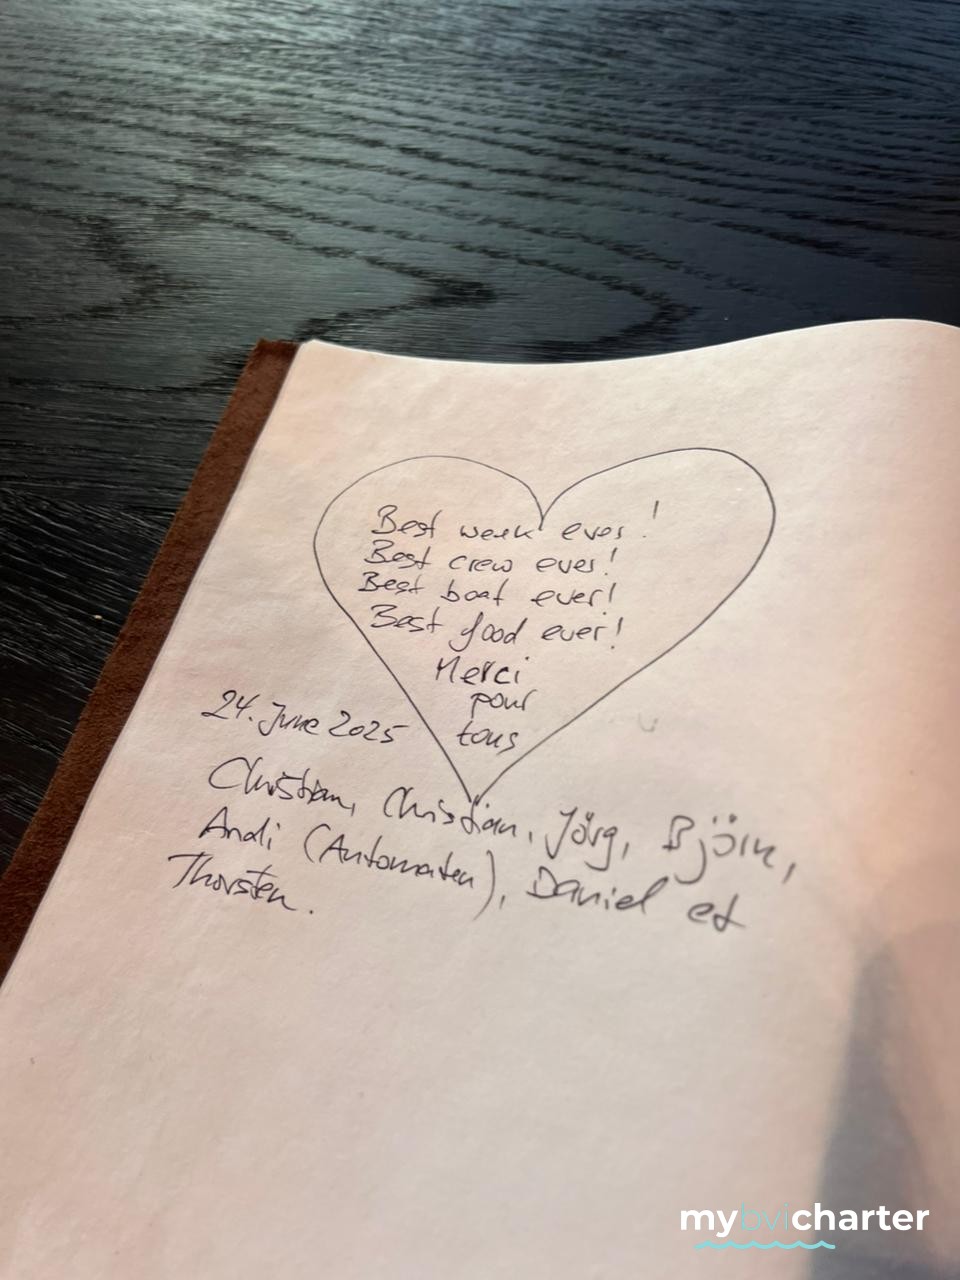 Best week ever!
Best crew ever!
Best boat ever!
Best food ever!
Merci
pour
tous
24. June 2025
Christian, Christian, Jörg, Björn,
Andi (Automaten), Daniel et
Thorsten.
mybvicharter